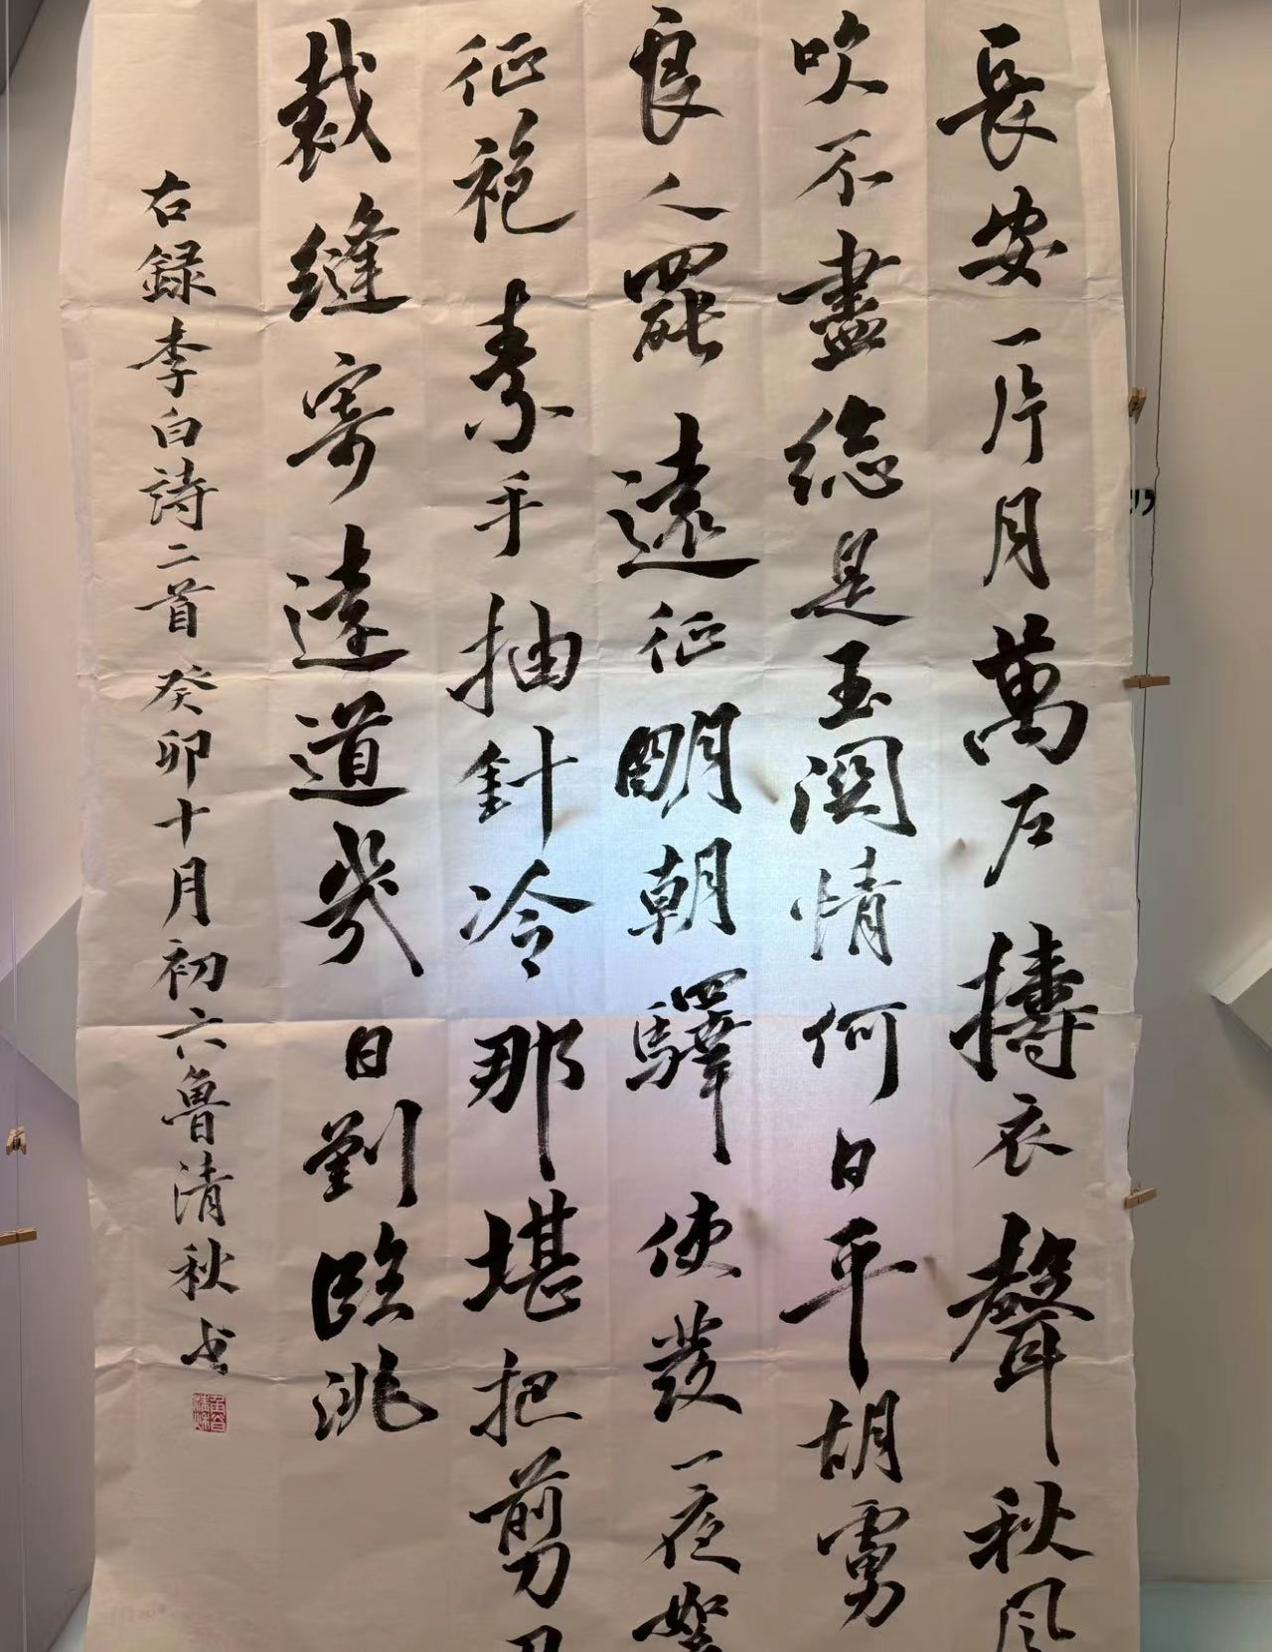 長安一片月萬戶擣衣聲秋風
吹不盡総是玉関情何日平胡虜
良人罷遠征明朝驛使發一夜絮
征袍素手抽針冷那堪把剪刀
裁縫寄遠道幾日到臨洮
右録李白詩二首癸卯十月初六魯清秋书